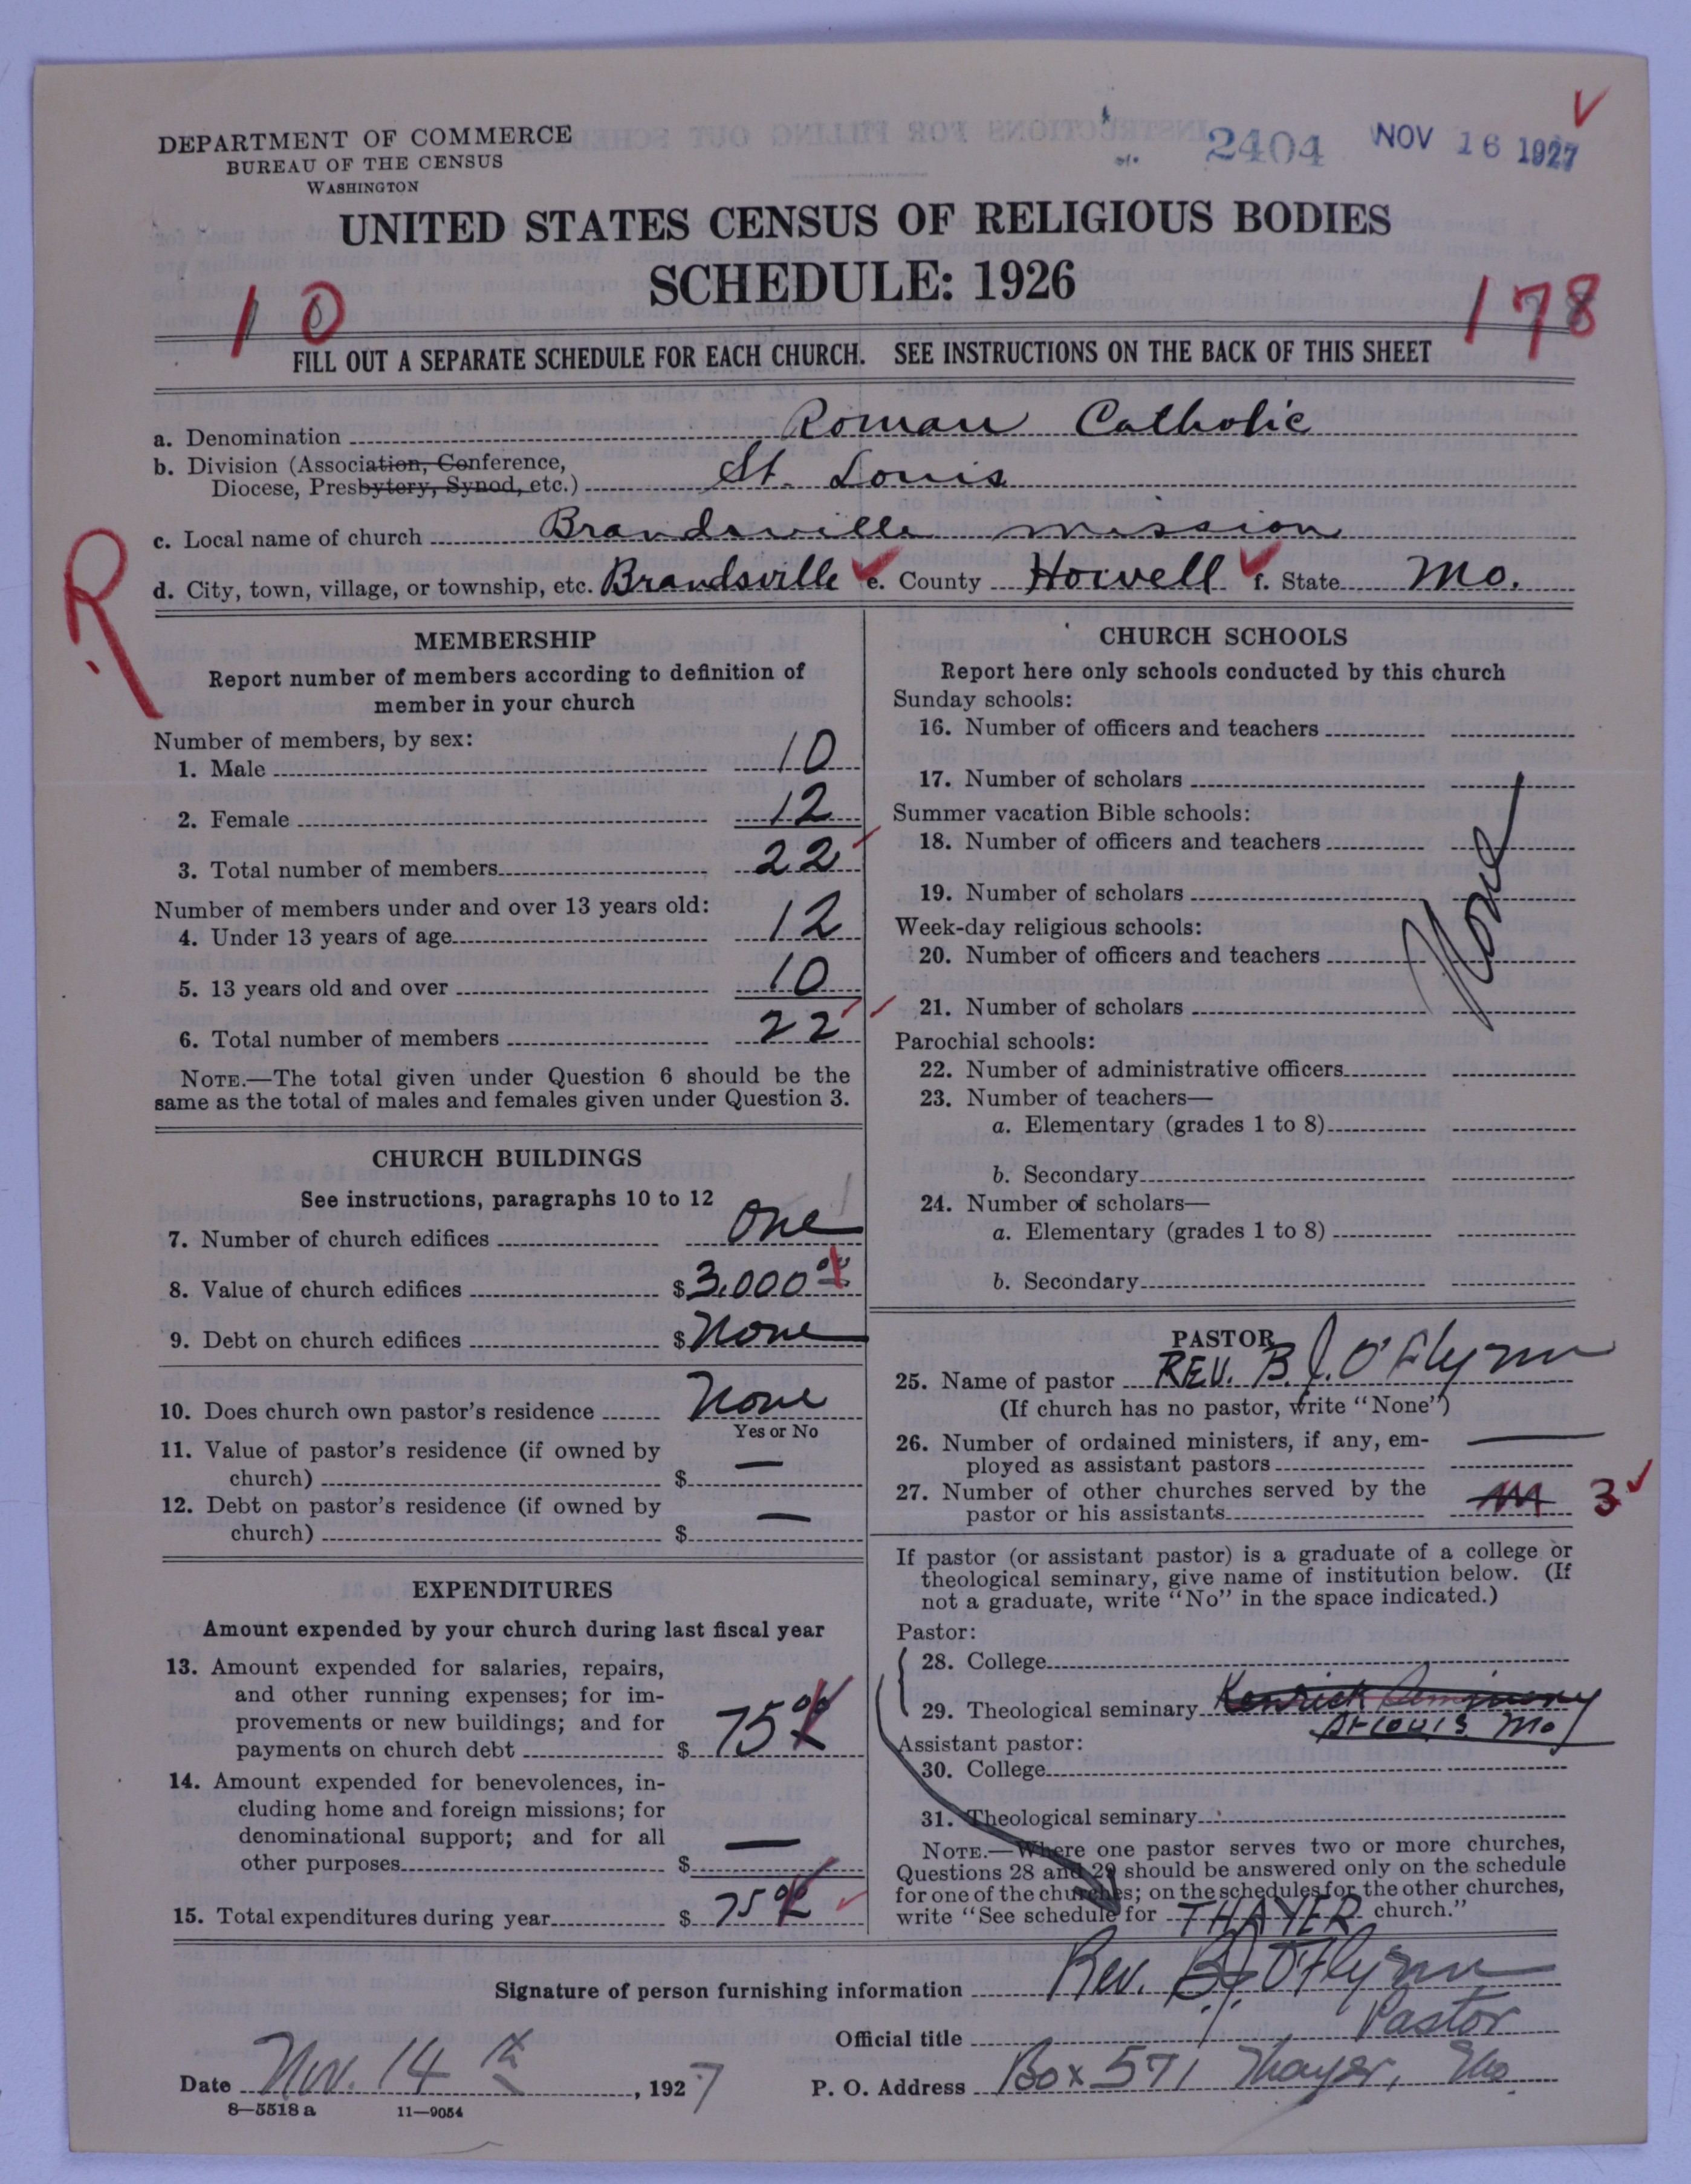 DEPARTMENT OF COMMERCE
BUREAU OF THE CENSUS
WASHINGTON
2404 NOV 16 1927
UNITED STATES CENSUS OF RELIGIOUS BODIES
SCHEDULE: 1926
10 178
FILL OUT A SEPARATE SCHEDULE FOR EACH CHURCH. SEE INSTRUCTIONS ON THE BACK OF THIS SHEET
a. Denomination Roman Catholic
b. Division (Association, Conference,
Diocese, Presbytery, Synod, etc.) St. Louis
c. Local name of church Brandsville mission
d. City, town, village, or township, etc. Brandsville e. County Howell f. State Mo.
R
MEMBERSHIP
Report number of members according to definition of
member in your church
Number of members, by sex:
1. Male 10
2. Female 12
3. Total number of members 22
Number of members under and over 13 years old:
4. Under 13 years of age 12
5. 13 years old and over 10
6. Total number of members 22
NOTE.—The total given under Question 6 should be the
same as the total of males and females given under Question 3.
CHURCH BUILDINGS
See instructions, paragraphs 10 to 12
7. Number of church edifices One
8. Value of church edifices $ 3,000 00
9. Debt on church edifices $ None
10. Does church own pastor's residence None
Yes or No
11. Value of pastor's residence (if owned by
church) $ —
12. Debt on pastor's residence (if owned by
church) $ —
EXPENDITURES
Amount expended by your church during last fiscal year
13. Amount expended for salaries, repairs,
and other running expenses; for im-
provements or new buildings; and for
payments on church debt $ 75 00
14. Amount expended for benevolences, in-
cluding home and foreign missions; for
denominational support; and for all
other purposes $ —
15. Total expenditures during year $ 75 00
CHURCH SCHOOLS
Report here only schools conducted by this church
Sunday schools:
16. Number of officers and teachers
17. Number of scholars
Summer vacation Bible schools:
18. Number of officers and teachers
19. Number of scholars
None
Week-day religious schools:
20. Number of officers and teachers
21. Number of scholars
Parochial schools:
22. Number of administrative officers
23. Number of teachers—
a. Elementary (grades 1 to 8)
b. Secondary
24. Number of scholars—
a. Elementary (grades 1 to 8)
b. Secondary
PASTOR
25. Name of pastor REV. B. J. O'Flynn
(If church has no pastor, write "None")
26. Number of ordained ministers, if any, em-
ployed as assistant pastors —
27. Number of other churches served by the
pastor or his assistants 3
If pastor (or assistant pastor) is a graduate of a college or
theological seminary, give name of institution below. (If
not a graduate, write "No" in the space indicated.)
Pastor:
28. College
29. Theological seminary Kenrick Seminary
St Louis Mo
Assistant pastor:
30. College
31. Theological seminary
NOTE.—Where one pastor serves two or more churches,
Questions 28 and 29 should be answered only on the schedule
for one of the churches; on the schedules for the other churches,
write "See schedule for THAYER church."
Signature of person furnishing information Rev. B J O'Flynn
Official title Pastor
Date Nov. 14 th, 1927 P. O. Address Box 571 Thayer, Mo.
8—5518 a 11—9054